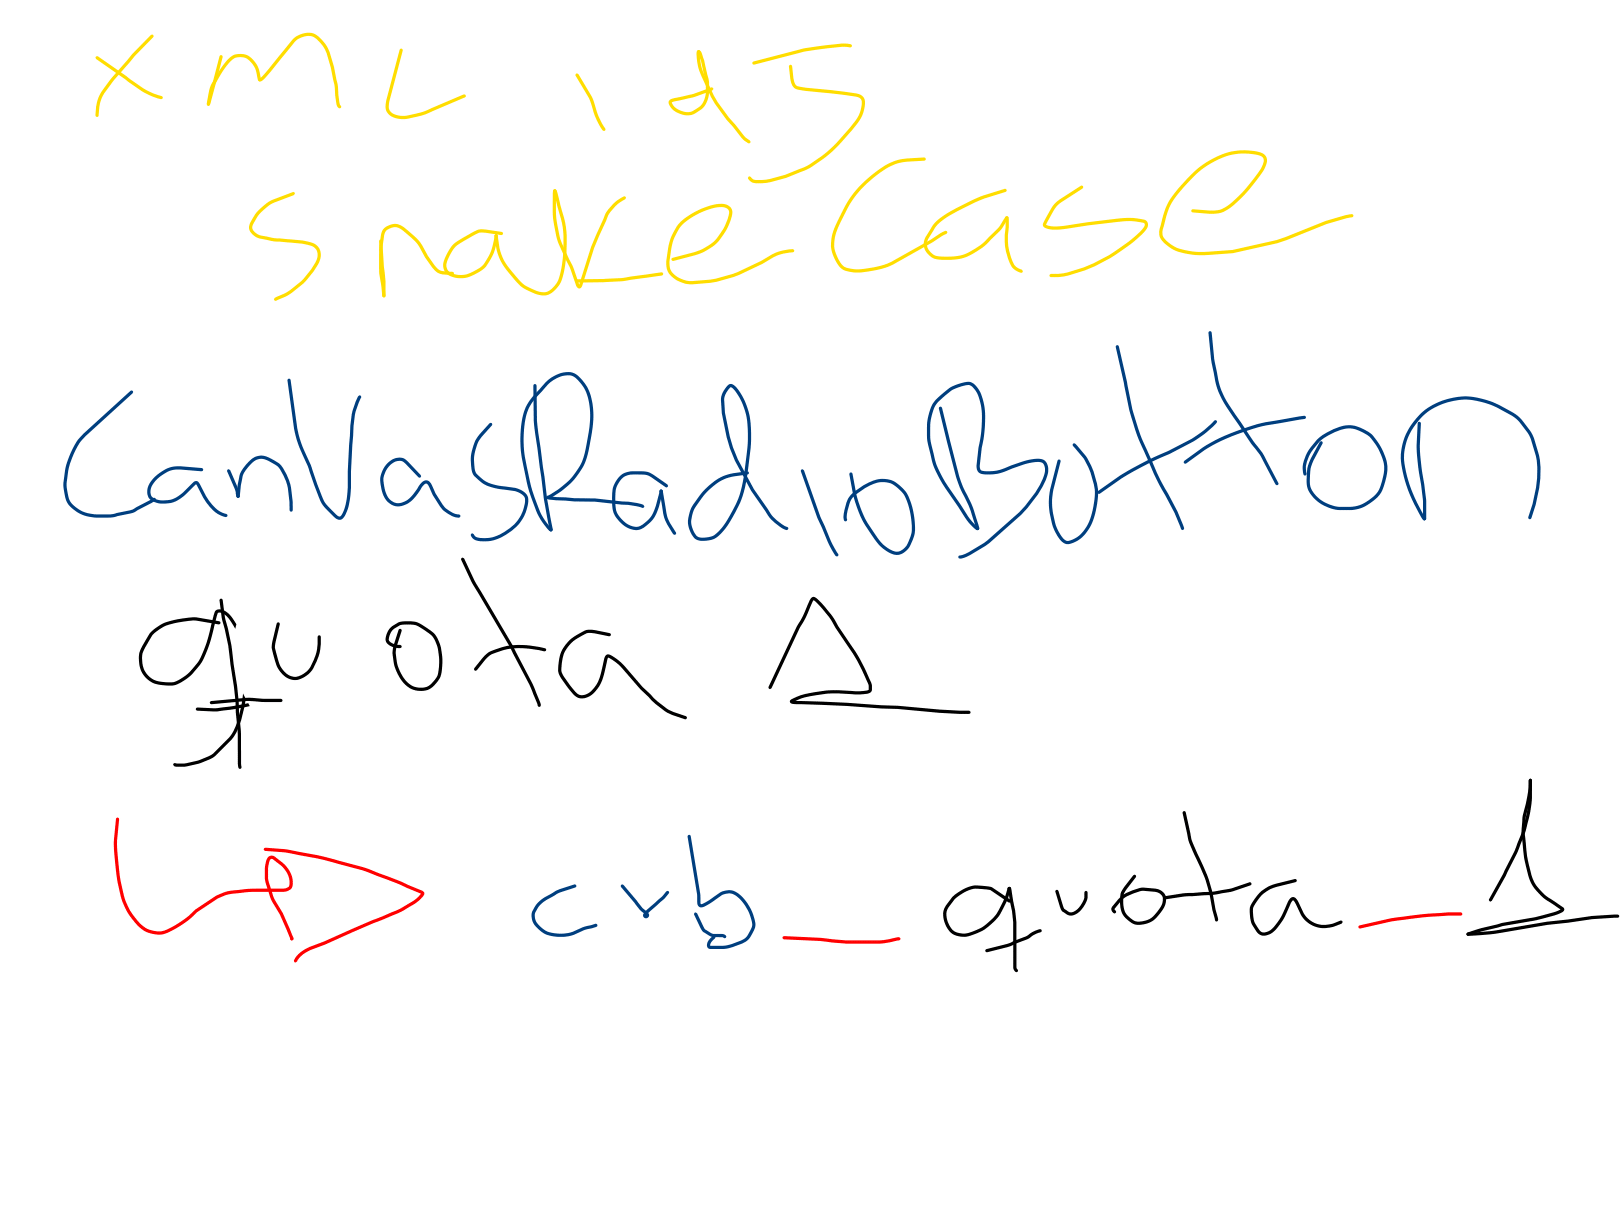 XML ids
snakeCase
CanvasRadioButton
quota 1
cvb_quota_1